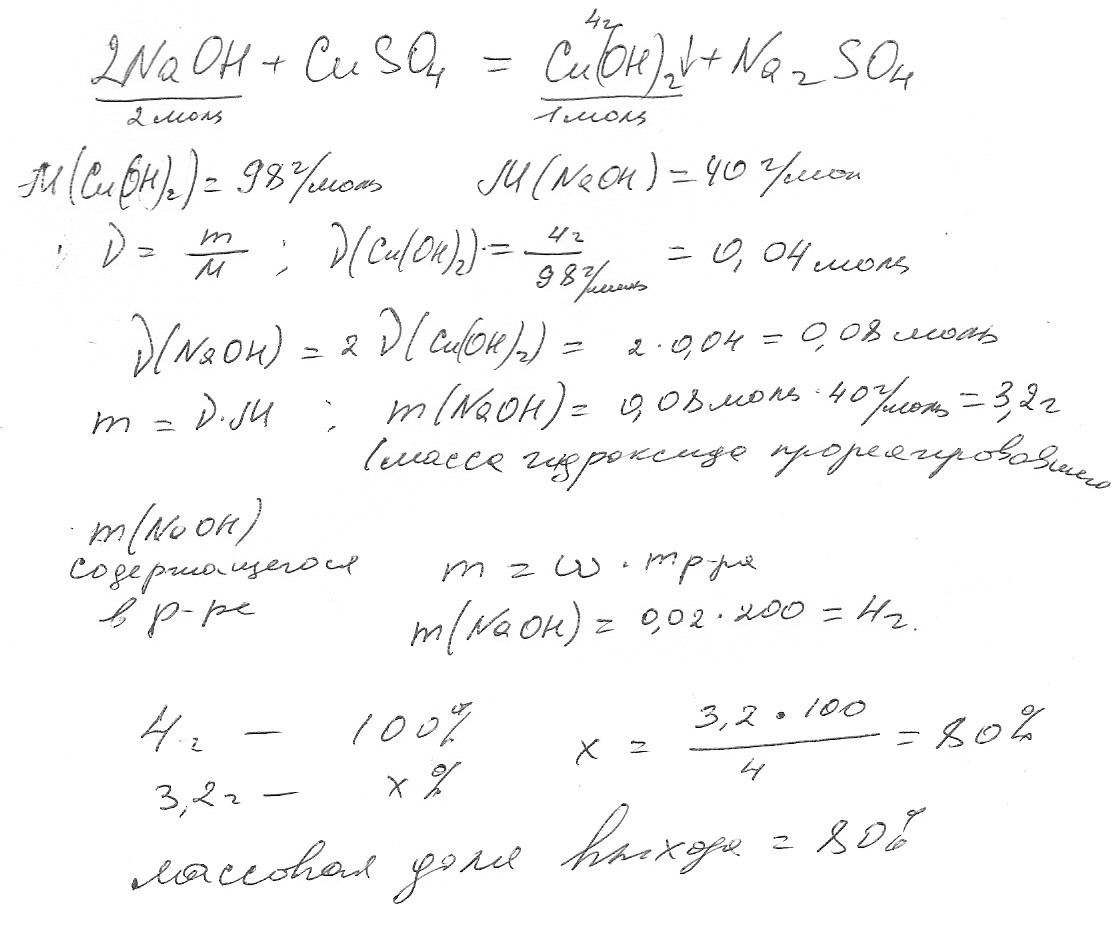 4г
2NaOH + CuSO₄ = Cu(OH)₂↓ + Na₂SO₄
2 моль 1 моль
M(Cu(OH)₂) = 98 г/моль M(NaOH) = 40 г/мол
ν = m/M ; ν(Cu(OH)₂) = 4г/98 г/моль = 0,04 моль
ν(NaOH) = 2 ν(Cu(OH)₂) = 2·0,04 = 0,08 моль
m = ν·M ; m(NaOH) = 0,08 моль · 40 г/моль = 3,2 г
(масса гидроксида прореагировавшего
m(NaOH)
содержащегося m = ω · mр-ра
в р-ре m(NaOH) = 0,02·200 = 4г.
4г — 100% x = 3,2 · 100/4 = 80%
3,2г — x%
массовая доля выхода = 80%